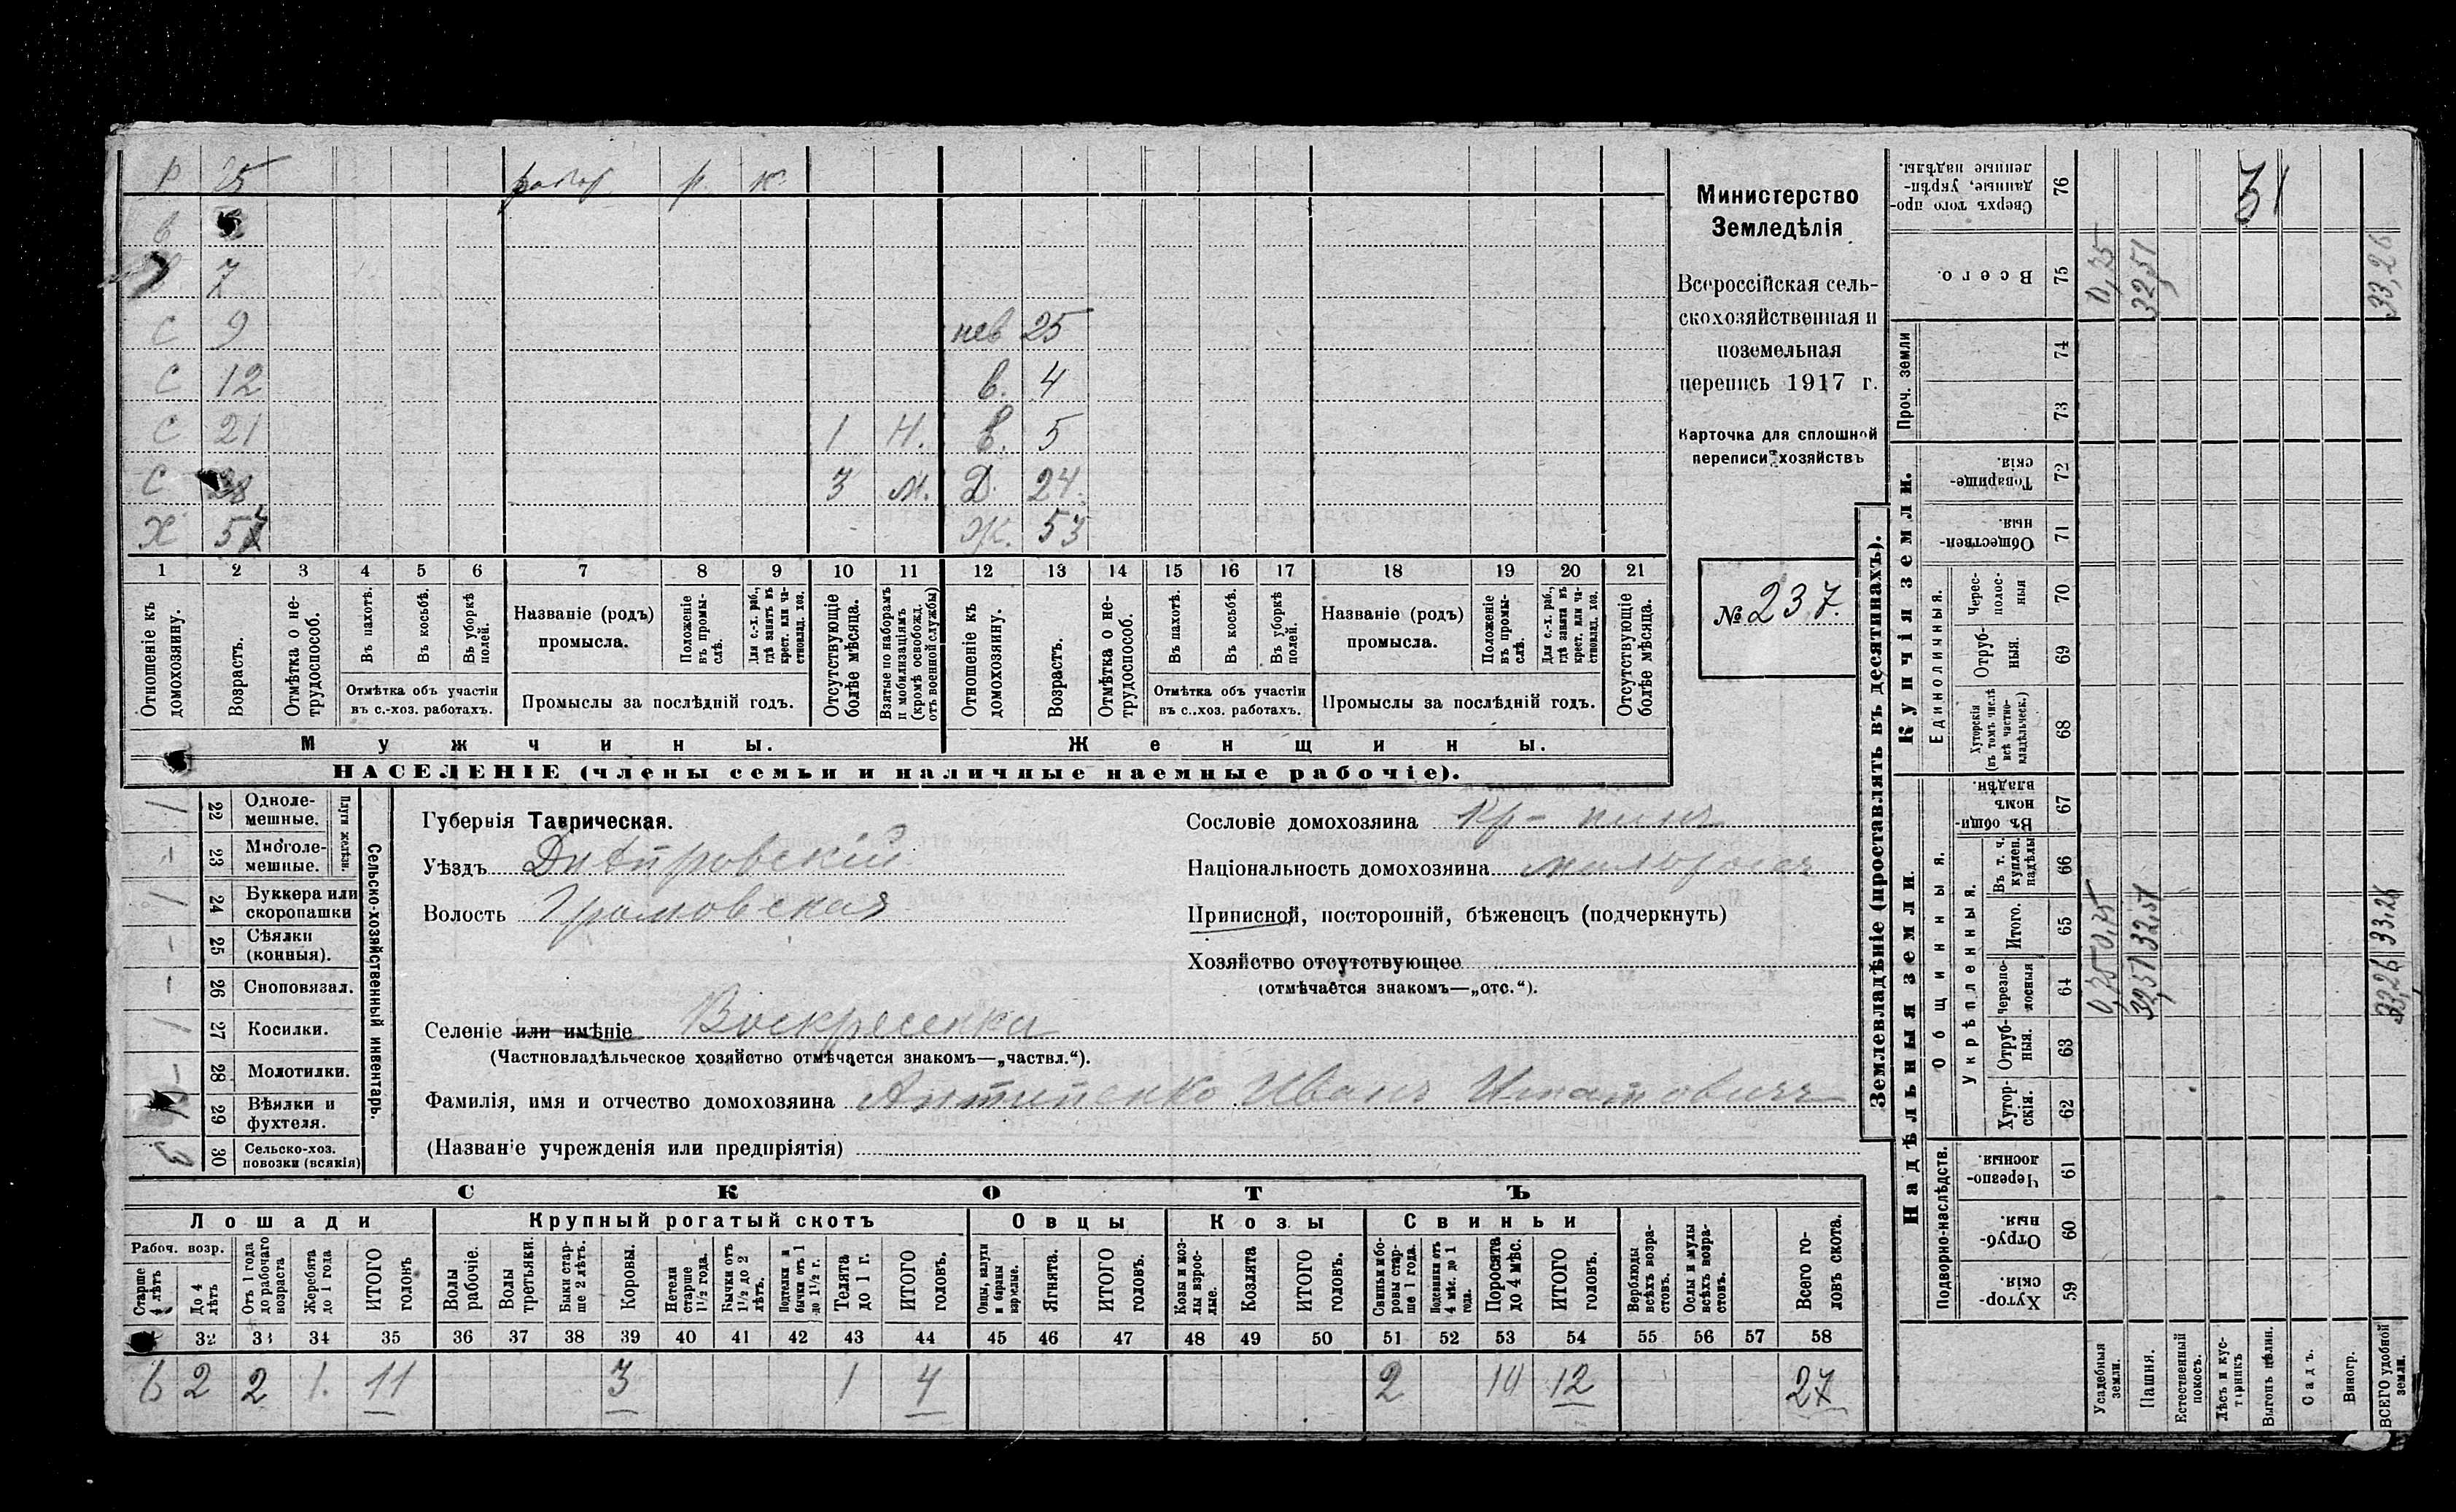 Р 25 работ р. к.
в
7
С 9 нев 25
С 12 в. 4
С 21 1 Н. в. 5
С 28 3 М. Д. 24
Х 5 Ж. 53
1 2 3 4 5 6 7 8 9 10 11 12 13 14 15 16 17 18 19 20 21
Отношеніе къ домохозяину.
Возрастъ.
Отмѣтка о не-трудоспособ.
Въ пахотѣ.
Въ косьбѣ.
Въ уборкѣ полей.
Отмѣтка объ участіи
въ с.-хоз. работахъ.
Названіе (родъ)
промысла.
Положеніе въ промы-слѣ.
Для с.-х. раб., гдѣ занятъ въ крест. или ча-стновлад. хоз.
Промыслы за послѣдній годъ.
Отсутствующіе болѣе мѣсяца.
Взятые по наборамъ и мобилизаціямъ (кромѣ освобожд. отъ военной службы)
Отношеніе къ домохозяину.
Возрастъ.
Отмѣтка о не-трудоспособ.
Въ пахотѣ.
Въ косьбѣ.
Въ уборкѣ полей.
Отмѣтка объ участіи
въ с.-хоз. работахъ.
Названіе (родъ)
промысла.
Положеніе въ промы-слѣ.
Для с.-х. раб., гдѣ занята въ крест. или ча-стновлад. хоз.
Промыслы за послѣдній годъ.
Отсутствующіе болѣе мѣсяца.
Мужчины.
Женщины.
НАСЕЛЕНІЕ (члены семьи и наличные наемные рабочіе).
Министерство
Земледѣлія
Всероссійская сель-
скохозяйственная и
поземельная
перепись 1917 г.
Карточка для сплошной
переписи хозяйствъ
№ 237.
22 Одноле-мешные. 1
23 Многоле-мешные. –
Плуги желѣзн.
24 Буккера или скоропашки 1
25 Сѣялки (конныя). –
26 Сноповязал. –
27 Косилки. 1
28 Молотилки. –
29 Вѣялки и фухтеля.
30 Сельско-хоз. повозки (всякія)
Сельско-хозяйственный инвентарь.
Губернія Таврическая.
Уѣздъ Днѣпровскій
Волость Громовская
Селеніе или имѣніе Воскресенка
(Частновладѣльческое хозяйство отмѣчается знакомъ—„частвл.“).
Фамилія, имя и отчество домохозяина Антипенко Иванъ Игнатовичъ
(Названіе учрежденія или предпріятія)
Сословіе домохозяина кр-нинъ
Національность домохозяина малороссъ
Приписной, посторонній, бѣженецъ (подчеркнуть)
Хозяйство отсутствующее
(отмѣчается знакомъ—„отс.“).
СКОТЪ
Лошади
Крупный рогатый скотъ
Овцы
Козы
Свиньи
Рабоч. возр.
Старше 4 лѣтъ
До 4 лѣтъ
Отъ 1 года до рабочаго возраста
Жеребята до 1 года
ИТОГО головъ
Волы рабочіе.
Волы третьяки.
Быки стар-ше 2 лѣтъ.
Коровы.
Нетели старше 1½ года.
Бычки отъ 1½ до 2 лѣтъ.
Подтелки и бычки отъ 1 до 1½ г.
Телята до 1 г.
ИТОГО головъ.
Овцы, валухи и бараны взрослые.
Ягнята.
ИТОГО головъ.
Козы и коз-лы взрос-лые.
Козлята
ИТОГО головъ.
Свиньи и бо-ровы стар-ше 1 года.
Подсвинки отъ 4 мѣс. до 1 года.
Поросята до 4 мѣс.
ИТОГО головъ.
Верблюды всѣхъ возра-стовъ.
Ослы и мулы всѣхъ возра-стовъ.
Всего го-ловъ скота.
32 33 34 35 36 37 38 39 40 41 42 43 44 45 46 47 48 49 50 51 52 53 54 55 56 57 58
6 2 2 1. 11 3 1 4 2 10 12 27
Землевладѣніе (проставлять въ десятинахъ).
Сверхъ того про-данные, укрѣп-ленные надѣлы. 76
31
Всего. 75 0,75 32,51 33,26
Проч. земли 74 73
Купчія земли.
Товарище-скія. 72
Обществен-ныя. 71
Единоличныя.
Черес-полос-ныя 70
Отруб-ныя. 69
Хуторскія (въ томъ числѣ всѣ частно-владѣльческ.) 68
Надѣльныя земли.
Общинныя.
Въ общи-номъ владѣн. 67
Укрѣпленныя.
Въ т. ч. куплен. надѣлы 66
Итого. 65 0,75 32,51 33,26
Черезпо-лосныя 64 0,75 32,51 33,26
Отруб-ныя. 63
Хутор-скія. 62
Подворно-наслѣдств.
Черезпо-лосныя. 61
Отруб-ныя. 60
Хутор-скія. 59
Усадебныя земли.
Пашня.
Естественный покосъ.
Лѣсъ и кус-тарникъ
Выгонъ цѣлин.
Садъ.
Виногр.
ВСЕГО удобной земли.